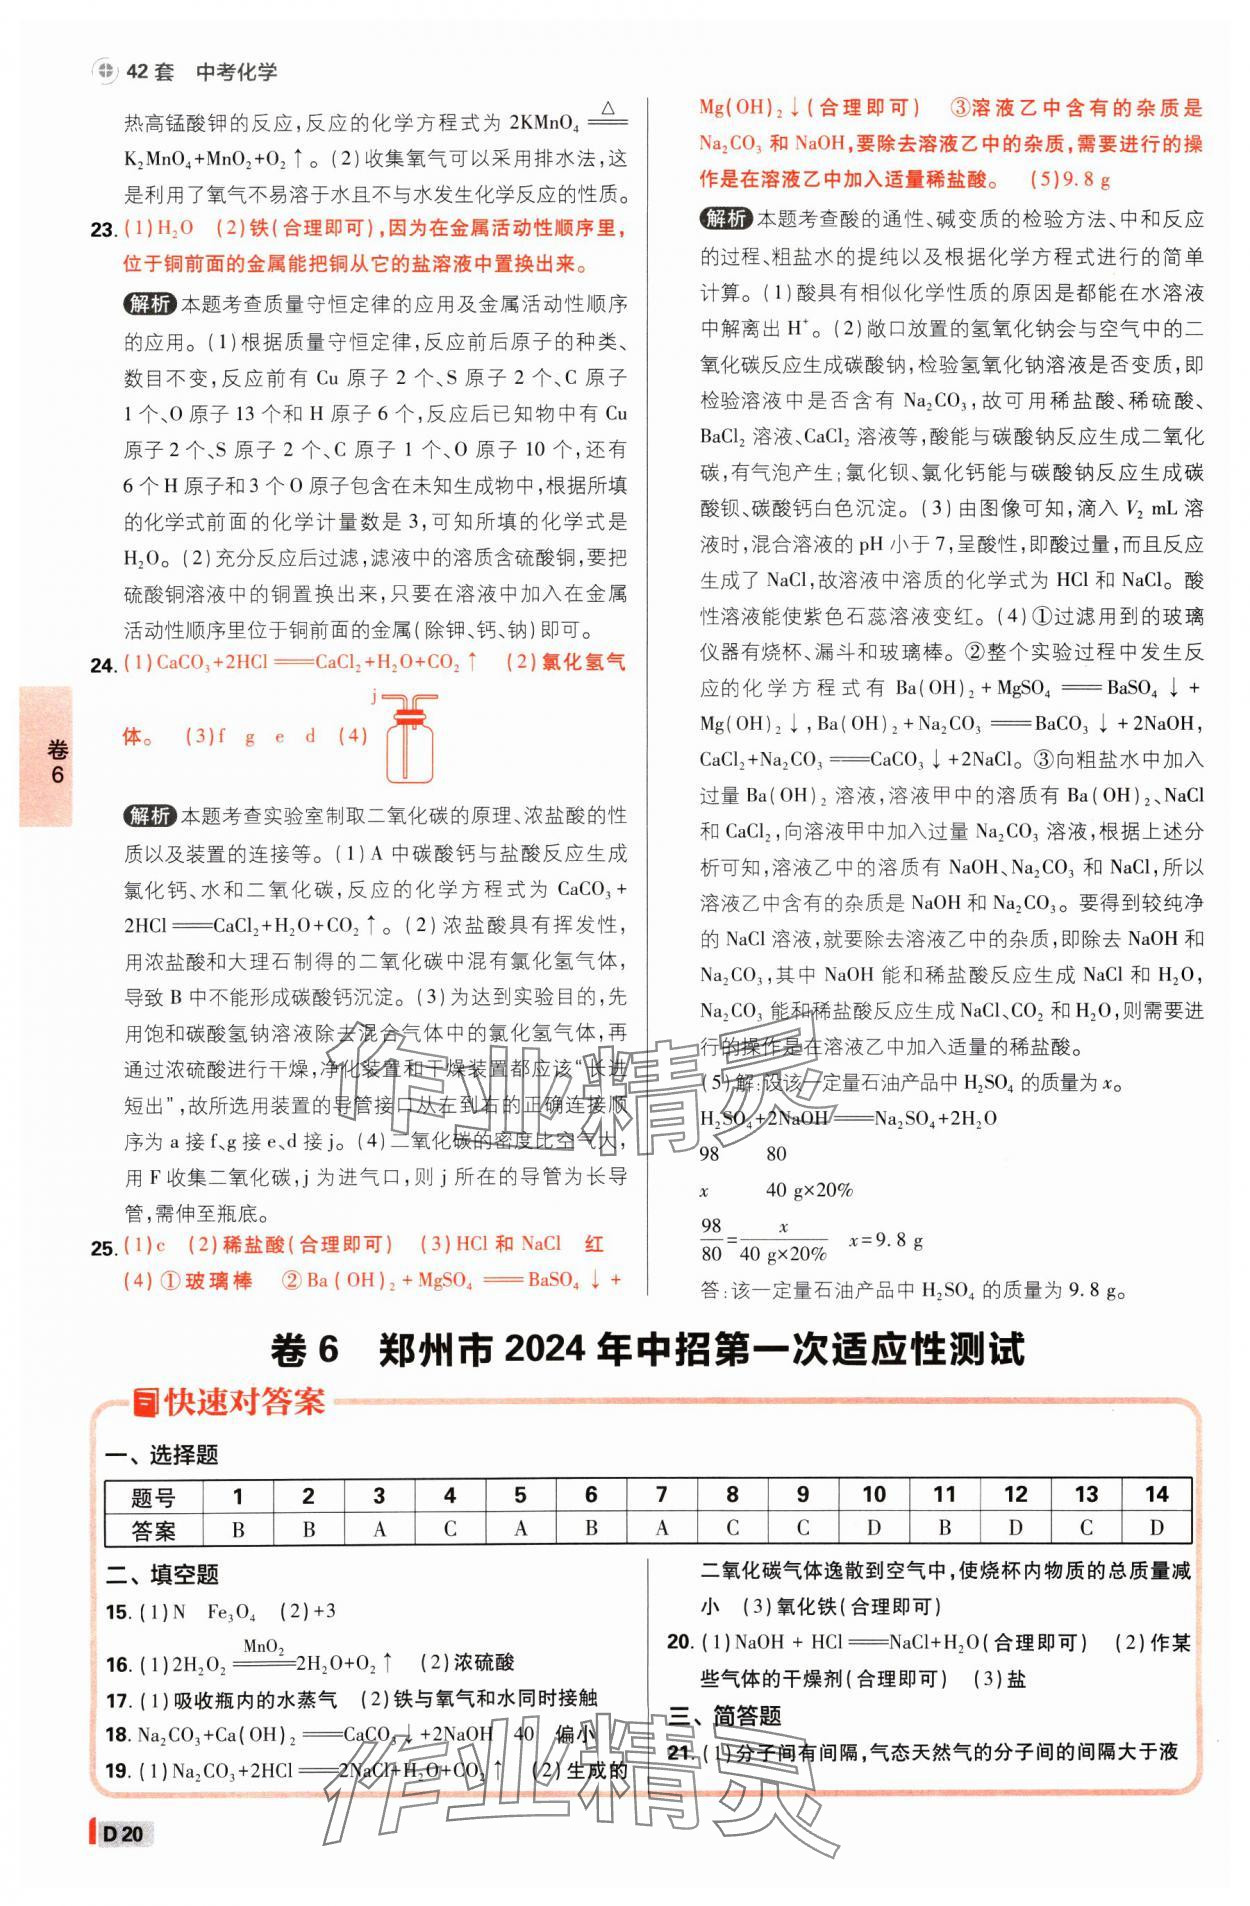 42 套 中考化学
热高锰酸钾的反应,反应的化学方程式为 2KMnO₄ ═△═
K₂MnO₄+MnO₂+O₂↑。(2)收集氧气可以采用排水法,这
是利用了氧气不易溶于水且不与水发生化学反应的性质。
23. (1)H₂O (2)铁(合理即可),因为在金属活动性顺序里,
位于铜前面的金属能把铜从它的盐溶液中置换出来。
解析 本题考查质量守恒定律的应用及金属活动性顺序
的应用。(1)根据质量守恒定律,反应前后原子的种类、
数目不变,反应前有 Cu 原子 2 个、S 原子 2 个、C 原子
1 个、O 原子 13 个和 H 原子 6 个,反应后已知物中有 Cu
原子 2 个、S 原子 2 个、C 原子 1 个、O 原子 10 个,还有
6 个 H 原子和 3 个 O 原子包含在未知生成物中,根据所填
的化学式前面的化学计量数是 3,可知所填的化学式是
H₂O。(2)充分反应后过滤,滤液中的溶质含硫酸铜,要把
硫酸铜溶液中的铜置换出来,只要在溶液中加入在金属
活动性顺序里位于铜前面的金属(除钾、钙、钠)即可。
24. (1)CaCO₃+2HCl══CaCl₂+H₂O+CO₂↑ (2)氯化氢气
体。 (3)f g e d (4) j
解析 本题考查实验室制取二氧化碳的原理、浓盐酸的性
质以及装置的连接等。(1)A 中碳酸钙与盐酸反应生成
氯化钙、水和二氧化碳,反应的化学方程式为 CaCO₃+
2HCl══CaCl₂+H₂O+CO₂↑。(2)浓盐酸具有挥发性,
用浓盐酸和大理石制得的二氧化碳中混有氯化氢气体,
导致 B 中不能形成碳酸钙沉淀。(3)为达到实验目的,先
用饱和碳酸氢钠溶液除去混合气体中的氯化氢气体,再
通过浓硫酸进行干燥,净化装置和干燥装置都应该“长进
短出”,故所选用装置的导管接口从左到右的正确连接顺
序为 a 接 f、g 接 e、d 接 j。(4)二氧化碳的密度比空气大,
用 F 收集二氧化碳,j 为进气口,则 j 所在的导管为长导
管,需伸至瓶底。
25. (1)c (2)稀盐酸(合理即可) (3)HCl 和 NaCl 红
(4)①玻璃棒 ②Ba(OH)₂+MgSO₄══BaSO₄↓+
Mg(OH)₂↓(合理即可) ③溶液乙中含有的杂质是
Na₂CO₃ 和 NaOH,要除去溶液乙中的杂质,需要进行的操
作是在溶液乙中加入适量稀盐酸。 (5)9.8 g
解析 本题考查酸的通性、碱变质的检验方法、中和反应
的过程、粗盐水的提纯以及根据化学方程式进行的简单
计算。(1)酸具有相似化学性质的原因是都能在水溶液
中解离出 H⁺。(2)敞口放置的氢氧化钠会与空气中的二
氧化碳反应生成碳酸钠,检验氢氧化钠溶液是否变质,即
检验溶液中是否含有 Na₂CO₃,故可用稀盐酸、稀硫酸、
BaCl₂ 溶液、CaCl₂ 溶液等,酸能与碳酸钠反应生成二氧化
碳,有气泡产生;氯化钡、氯化钙能与碳酸钠反应生成碳
酸钡、碳酸钙白色沉淀。(3)由图像可知,滴入 V₂ mL 溶
液时,混合溶液的 pH 小于 7,呈酸性,即酸过量,而且反应
生成了 NaCl,故溶液中溶质的化学式为 HCl 和 NaCl。酸
性溶液能使紫色石蕊溶液变红。(4)①过滤用到的玻璃
仪器有烧杯、漏斗和玻璃棒。②整个实验过程中发生反
应的化学方程式有 Ba(OH)₂+MgSO₄══BaSO₄↓+
Mg(OH)₂↓,Ba(OH)₂+Na₂CO₃══BaCO₃↓+2NaOH,
CaCl₂+Na₂CO₃══CaCO₃↓+2NaCl。③向粗盐水中加入
过量 Ba(OH)₂ 溶液,溶液甲中的溶质有 Ba(OH)₂、NaCl
和 CaCl₂,向溶液甲中加入过量 Na₂CO₃ 溶液,根据上述分
析可知,溶液乙中的溶质有 NaOH、Na₂CO₃ 和 NaCl,所以
溶液乙中含有的杂质是 NaOH 和 Na₂CO₃。要得到较纯净
的 NaCl 溶液,就要除去溶液乙中的杂质,即除去 NaOH 和
Na₂CO₃,其中 NaOH 能和稀盐酸反应生成 NaCl 和 H₂O,
Na₂CO₃ 能和稀盐酸反应生成 NaCl、CO₂ 和 H₂O,则需要进
行的操作是在溶液乙中加入适量的稀盐酸。
(5)解:设该一定量石油产品中 H₂SO₄ 的质量为 x。
H₂SO₄+2NaOH══Na₂SO₄+2H₂O
98 80
x 40 g×20%
98/80=x/(40 g×20%) x=9.8 g
答:该一定量石油产品中 H₂SO₄ 的质量为 9.8 g。
卷 6
卷 6 郑州市 2024 年中招第一次适应性测试
快速对答案
一、选择题
题号 1 2 3 4 5 6 7 8 9 10 11 12 13 14
答案 B B A C A B A C C D B D C D
二、填空题
15. (1)N Fe₃O₄ (2)+3
16. (1)2H₂O₂ ═MnO₂═ 2H₂O+O₂↑ (2)浓硫酸
17. (1)吸收瓶内的水蒸气 (2)铁与氧气和水同时接触
18. Na₂CO₃+Ca(OH)₂══CaCO₃↓+2NaOH 40 偏小
19. (1)Na₂CO₃+2HCl══2NaCl+H₂O+CO₂↑ (2)生成的
二氧化碳气体逸散到空气中,使烧杯内物质的总质量减
小 (3)氧化铁(合理即可)
20. (1)NaOH + HCl══NaCl+H₂O(合理即可) (2)作某
些气体的干燥剂(合理即可) (3)盐
三、简答题
21. (1)分子间有间隔,气态天然气的分子间的间隔大于液
D 20
作业精灵
作业精灵